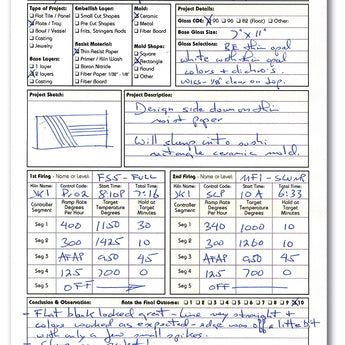 Type of Project: Embellish Layer: Mold: Project Details:
Flat Tile / Panel Small Cut Shapes Ceramic Glass COE: 90 96 82 (Float) Other:
Plate / Tray Pre Cut Shapes Metal Base Glass Size: 7" x 11"
Bowl / Vessel Frits, Stringers Rods Fiber Board Glass Selections: thin opal
Casting Resist Material: Mold Shape: white with thin opal
Jewelry Thin Resist Paper Square colors + dichro's.
Base Layers: Primer / Kiln Wash Rectangle 1/8" clear on top.
1 layer Boron Nitride Round
2 layers Fiber Paper 1/32" - 1/8" Other
Casting Fiber Board
Project Sketch: Project Description:
Design side down on thin
resist paper
Will slump into sushi
rectangle ceramic mold.
1st Firing - FSS-FULL 2nd Firing - MF1-SLUMP
Kiln Name: Control Code: Start Time: Total Time: Kiln Name: Control Code: Start Time: Total Time:
JK1 Pro2 8:10P 7:16 JK1 SLP 10A 6:33
Controller Segment Ramp Rate Degrees Per Hour Target Temperature Degrees Hold at Target Minutes Controller Segment Ramp Rate Degrees Per Hour Target Temperature Degrees Hold at Target Minutes
Seg 1 400 1150 30 Seg 1 340 1000 10
Seg 2 300 1425 10 Seg 2 300 1260 10
Seg 3 AFAP 950 45 Seg 3 AFAP 950 45
Seg 4 125 700 0 Seg 4 125 700 0
Seg 5 OFF Seg 5 OFF
Conclusion & Observation: Rate the Final Outcome: 1 2 3 4 5 6 7 8 9 10
- Flat blank looked great - line very straight +
colors worked as expected - edge was off a little bit
with only a few small spikes.